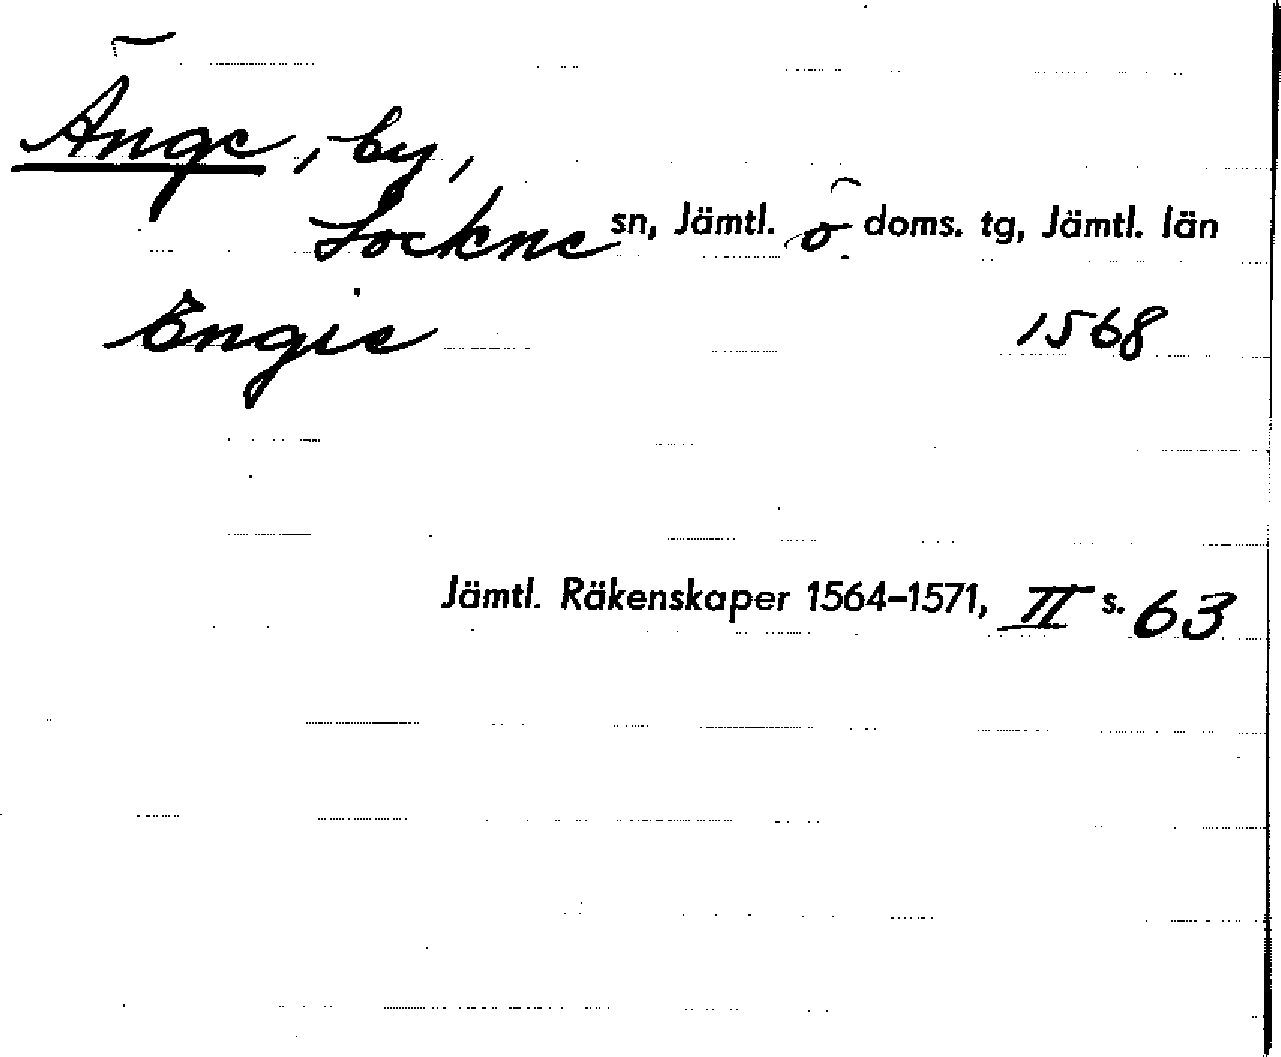 Änge, by,
Lockne sn, Jämtl. ö. doms. tg, Jämtl. län
Engie 1568
Jämtl. Räkenskaper 1564–1571, II s. 63